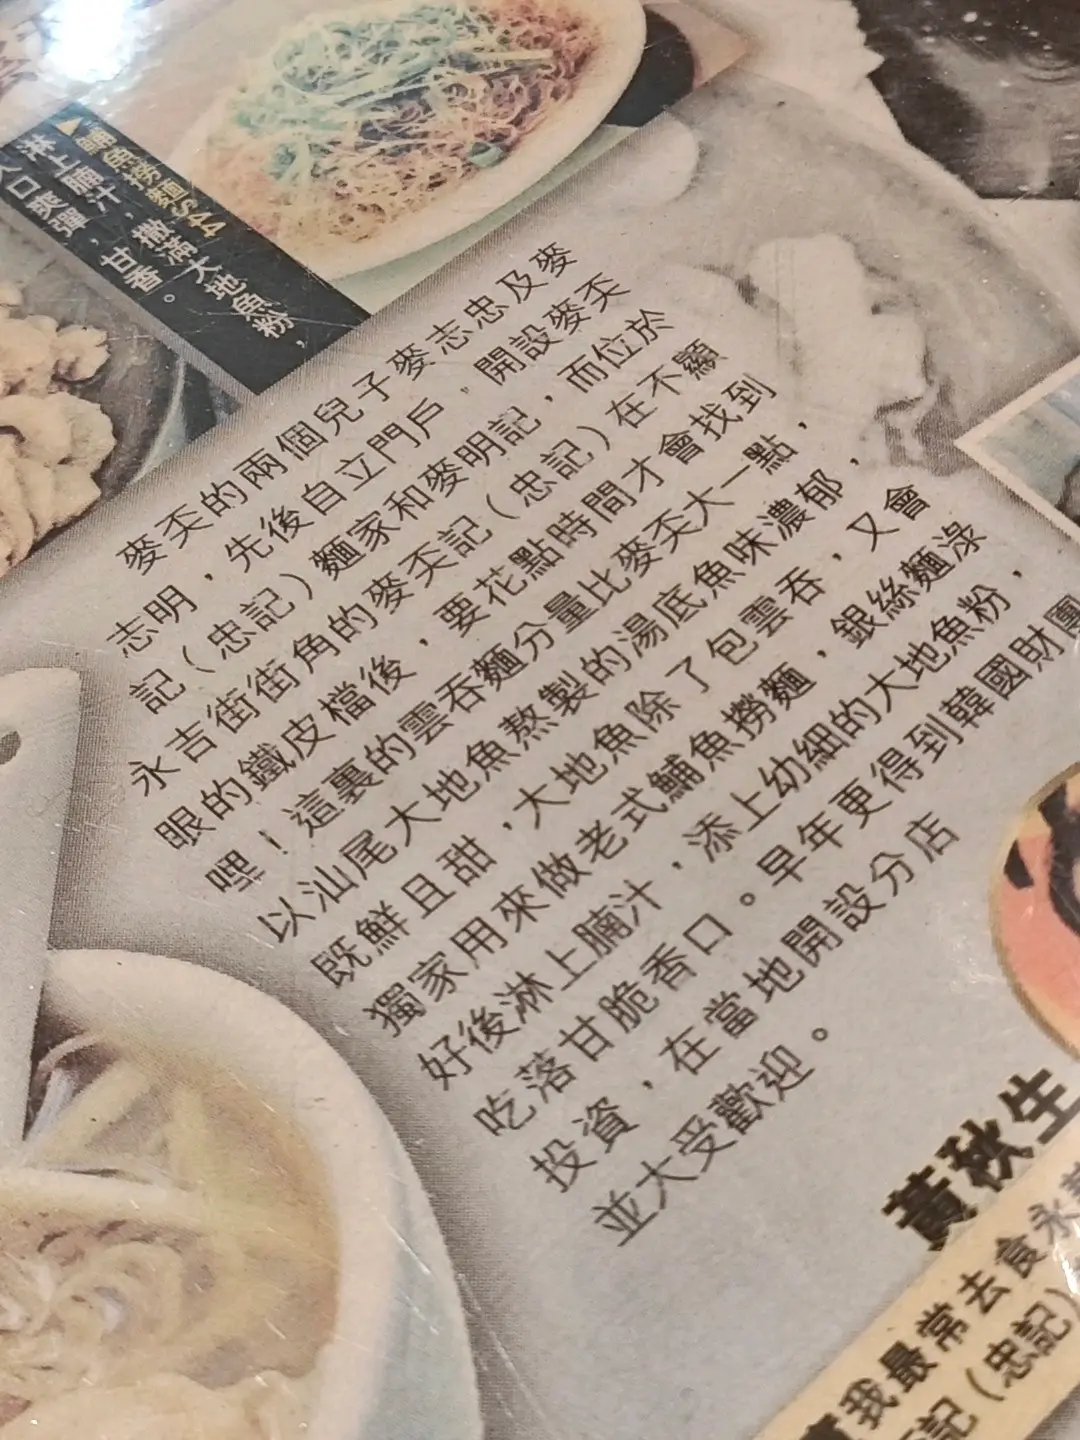 ▲鯆魚撈麵$44
淋上腩汁，撒滿大地魚粉，
入口爽彈，甘香。
麥奀的兩個兒子麥志忠及麥
志明，先後自立門戶，開設麥奀
記（忠記）麵家和麥明記，而位於
永吉街街角的麥奀記（忠記）在不顯
眼的鐵皮檔後，要花點時間才會找到
哩！這裏的雲吞麵分量比麥奀大一點，
以汕尾大地魚熬製的湯底魚味濃郁，
既鮮且甜，大地魚除了包雲吞，又會
獨家用來做老式鯆魚撈麵，銀絲麵淥
好後淋上腩汁，添上幼細的大地魚粉，
吃落甘脆香口。早年更得到韓國財團
投資，在當地開設分店
並大受歡迎。
黃秋生
我最常去食永
記（忠記）